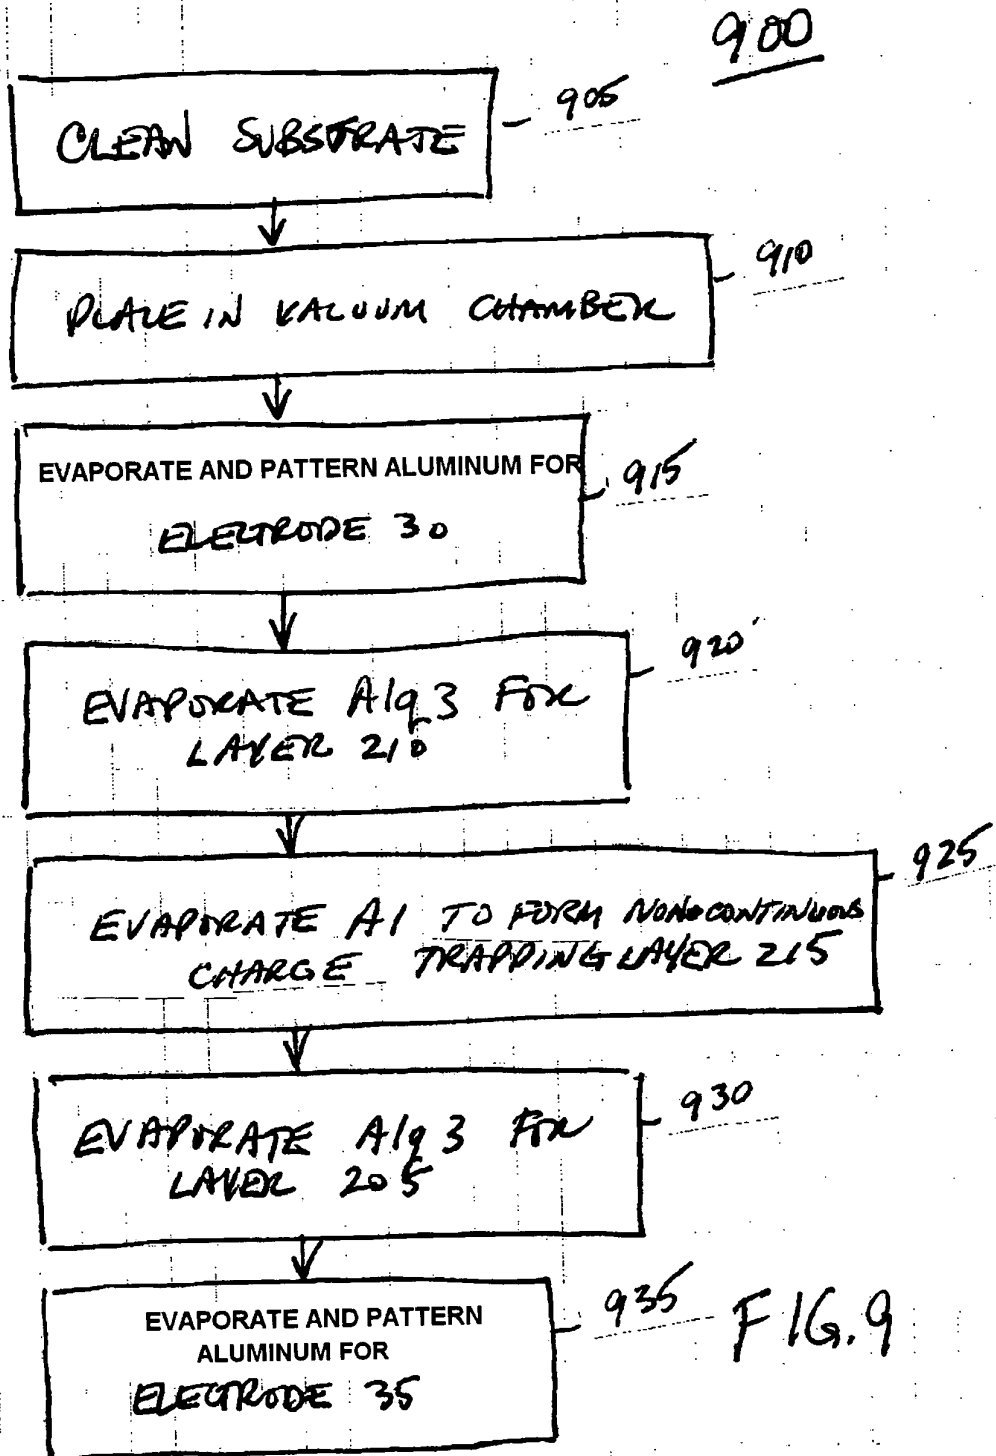 900
CLEAN SUBSTRATE
905
PLACE IN VACUUM CHAMBER
910
EVAPORATE AND PATTERN ALUMINUM FOR
ELECTRODE 30
915
EVAPORATE Alq3 FOR
LAYER 210
920
EVAPORATE Al TO FORM NONCONTINUOUS
CHARGE TRAPPING LAYER 215
925
EVAPORATE Alq3 FOR
LAYER 205
930
EVAPORATE AND PATTERN
ALUMINUM FOR
ELECTRODE 35
935
FIG.9